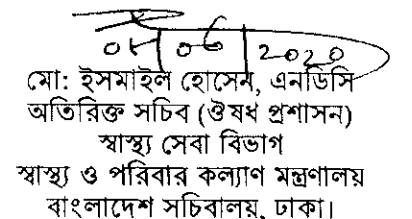 ০৮/০৬/2020
মো: ইসমাইল হোসেন, এনডিসি
অতিরিক্ত সচিব (ঔষধ প্রশাসন)
স্বাস্থ্য সেবা বিভাগ
স্বাস্থ্য ও পরিবার কল্যাণ মন্ত্রণালয়
বাংলাদেশ সচিবালয়, ঢাকা।